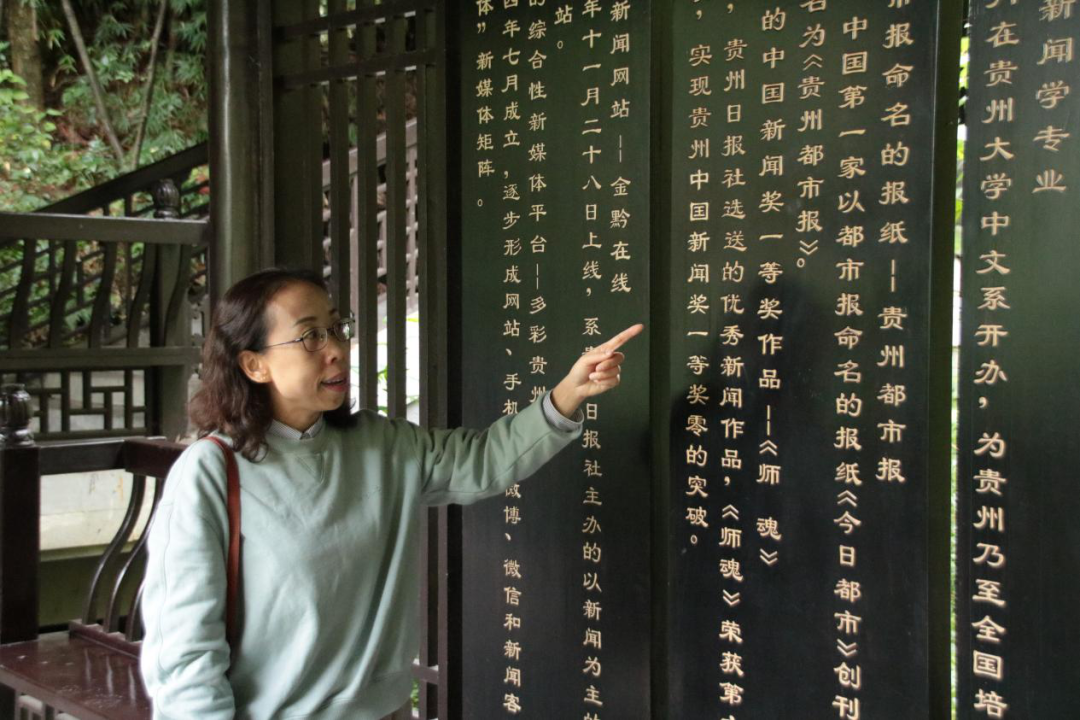 新闻学专业
在贵州大学中文系开办，为贵州乃至全国培
市报命名的报纸——贵州都市报
中国第一家以都市报命名的报纸《今日都市》创刊
名为《贵州都市报》。
的中国新闻奖一等奖作品——《师 魂》
，贵州日报社选送的优秀新闻作品，《师魂》荣获第
，实现贵州中国新闻奖一等奖零的突破。
新闻网站——金黔在线
年十一月二十八日上线，系 日报社主办的以新闻为主的
站。
的综合性新媒体平台——多彩贵州
四年七月成立，逐步形成网站、手机 微博、微信和新闻客
体”新媒体矩阵。